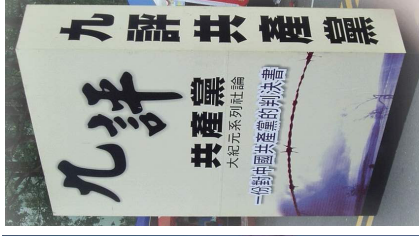 九評共產黨
九評
共產黨
大紀元系列社論
一份對中國共產黨的判決書